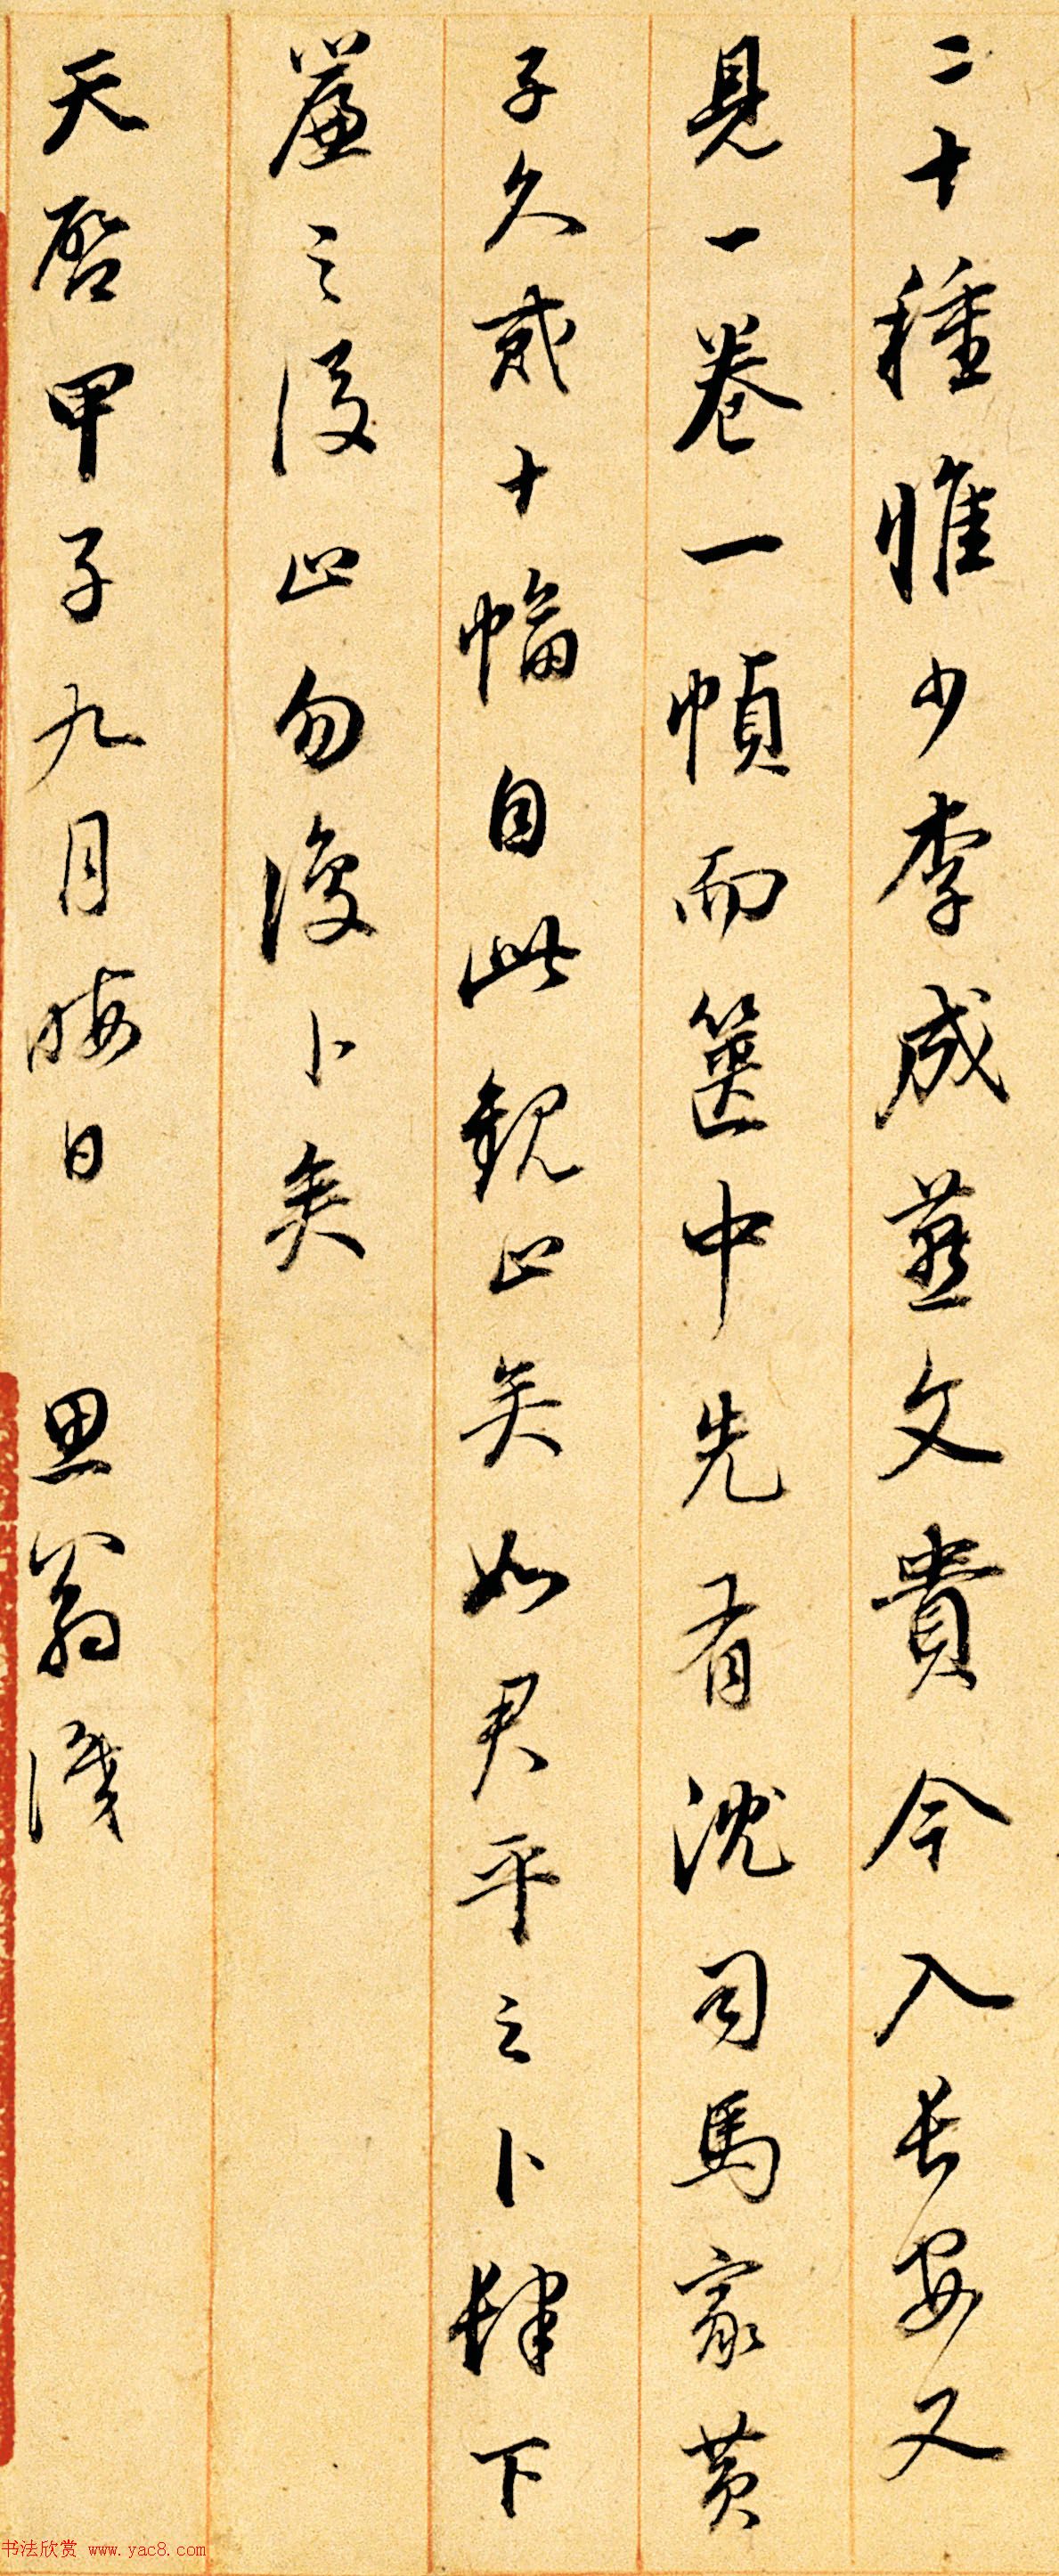 二十種惟少李成燕文貴今入長安又
見一卷一幀而篋中先有沈司馬家黄
子久貳十幅自此觀止矣如君平之卜肆下
簾之後止勿復卜矣
天啓甲子九月晦日 思翁識
书法欣赏 www.yac8.com